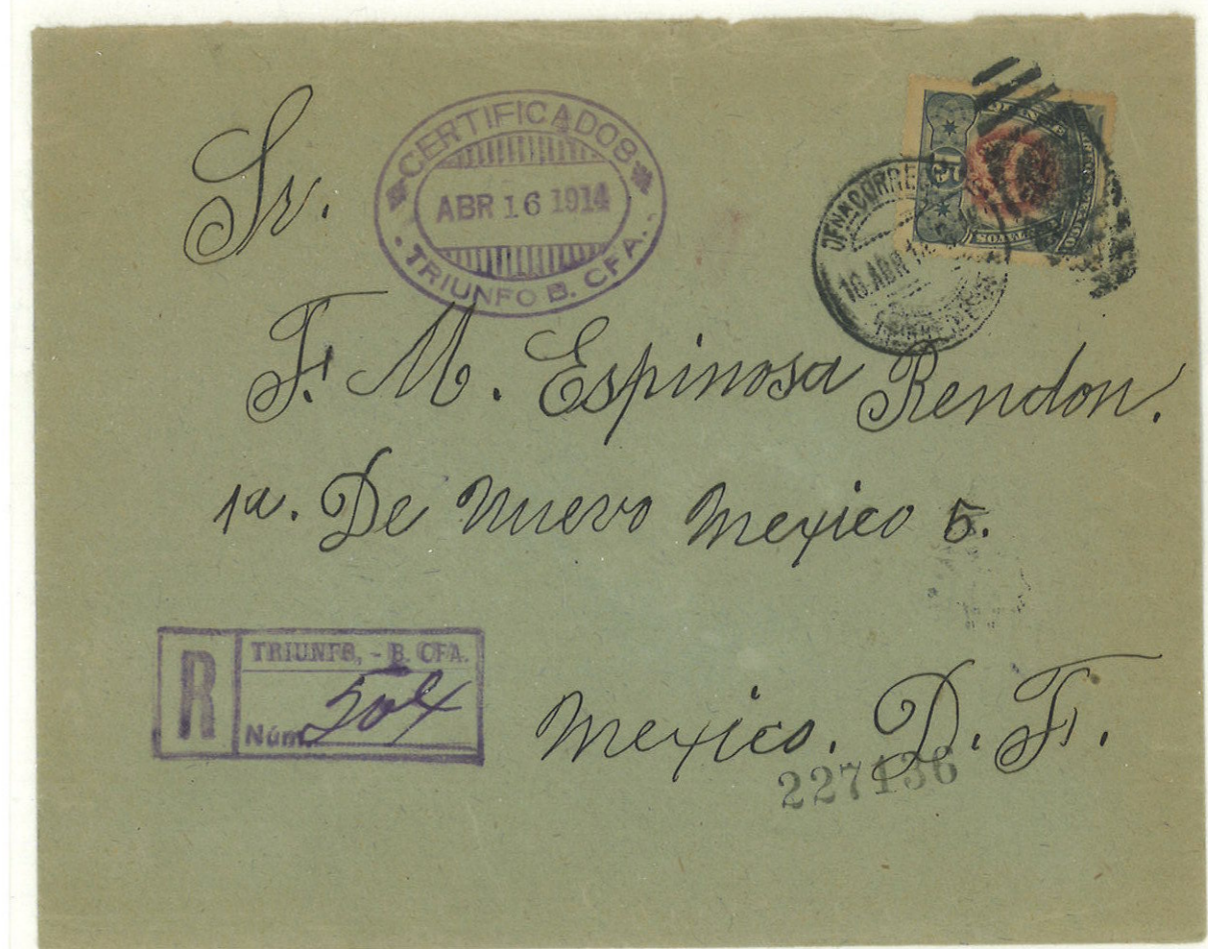 CERTIFICADOS
ABR 16 1914
TRIUNFO B. CFA.
Sr.
F. M. Espinosa Rendon.
1a. De Nuevo Mexico 5.
R
TRIUNFO, - B. CFA.
Núm. 504
Mexico. D. F.
227136